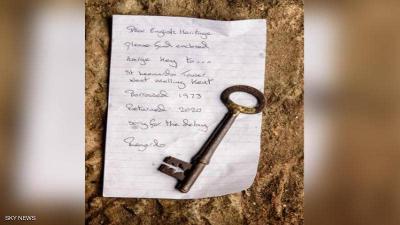 Dear English Heritage
please find enclosed
large key to...
St Leonards Tower
west malling Kent
Borrowed 1973
Returned 2020
sorry for the delay
Regards
SKY NEWS